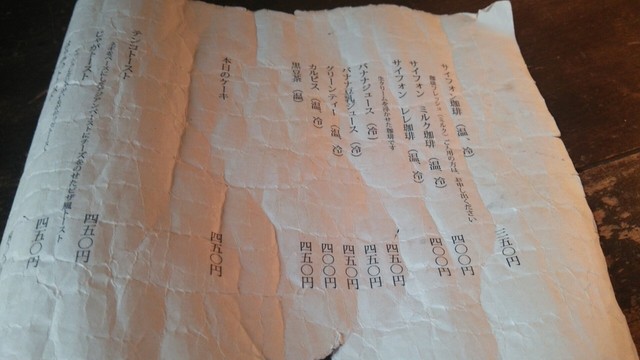 サイフォン珈琲 (温、冷) 三五〇円
珈琲フレッシュ(ミルク)ご入用の方は、お申し出ください
サイフォン ミルク珈琲 (温、冷) 四〇〇円
サイフォン 珈琲 (温、冷) 四〇〇円
生クリームを浮かせた珈琲です
バナナジュース (冷) 四五〇円
バナナ豆乳ジュース (冷) 四五〇円
グリーンティー (温、冷) 四五〇円
カルピス (温、冷) 四〇〇円
黒豆茶 (温) 四五〇円
本日のケーキ 四五〇円
テンコトースト 四五〇円
のせたピザ風トースト
トースト 四五〇円